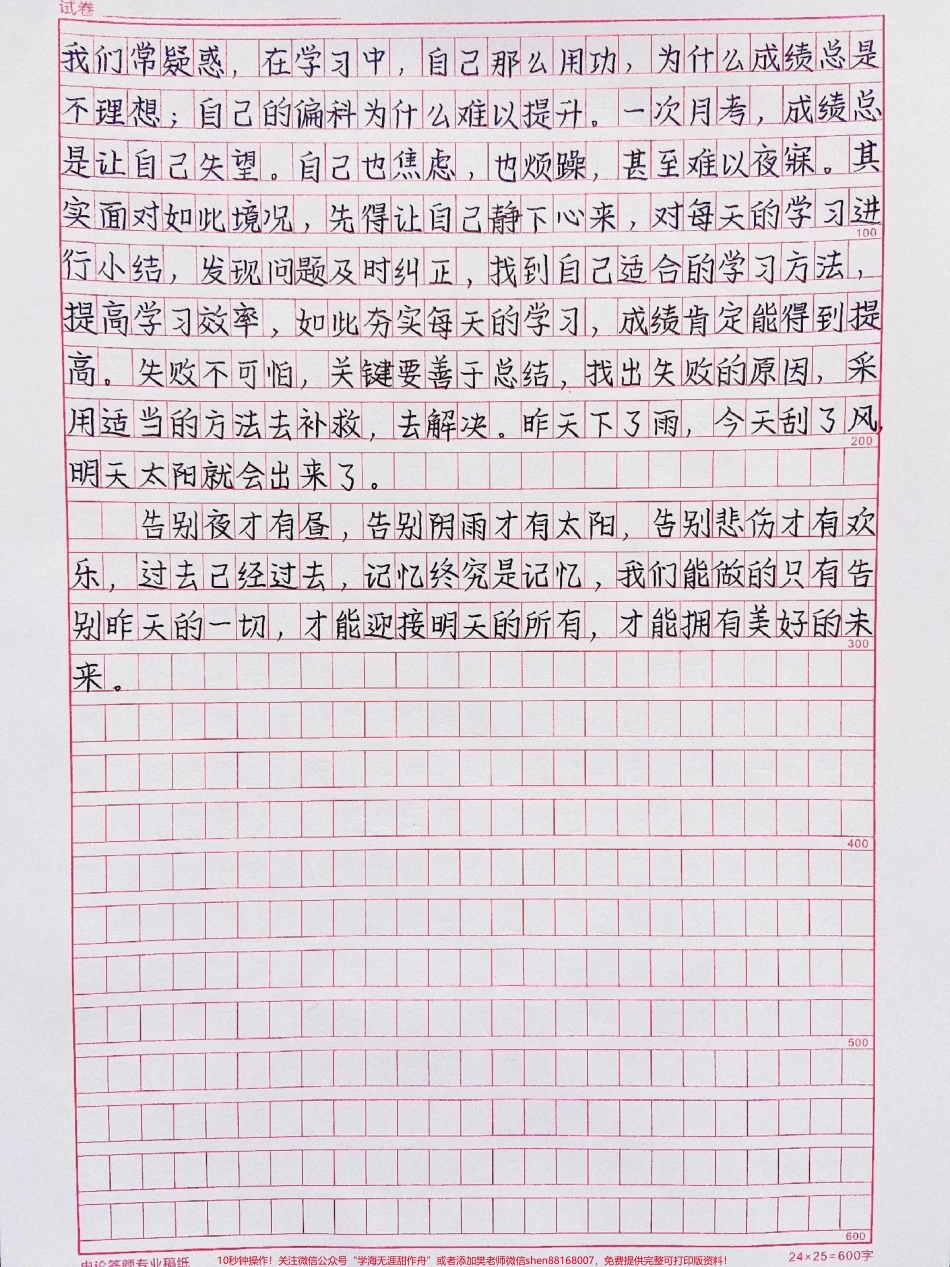 试卷
我们常疑惑，在学习中，自己那么用功，为什么成绩总是
不理想；自己的偏科为什么难以提升。一次月考，成绩总
是让自己失望。自己也焦虑，也烦躁，甚至难以夜寐。其
实面对如此境况，先得让自己静下心来，对每天的学习进
100
行小结，发现问题及时纠正，找到自己适合的学习方法，
提高学习效率，如此夯实每天的学习，成绩肯定能得到提
高。失败不可怕，关键要善于总结，找出失败的原因，采
用适当的方法去补救，去解决。昨天下了雨，今天刮了风，
200
明天太阳就会出来了。
告别夜才有昼，告别阴雨才有太阳，告别悲伤才有欢
乐，过去已经过去，记忆终究是记忆，我们能做的只有告
别昨天的一切，才能迎接明天的所有，才能拥有美好的未
300
来。
400
500
600
申论答题专业稿纸
10秒钟操作！关注微信公众号“学海无涯甜作舟”或者添加樊老师微信shen88168007，免费提供完整可打印版资料！
24×25=600字